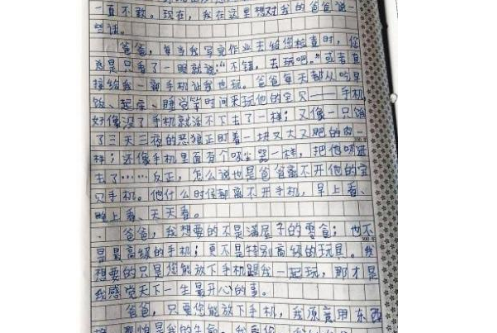 一直不敢。现在，我在这里想对我的爸爸说
些话。
爸爸，每当我写完作业去给您检查时，您
总是只看了一眼就说“不错，去玩吧。”或者直
接给我一部手机让我也玩。爸爸每天都从吃早
饭、起床、睡觉等时间来玩他的宝贝——手机，
好像没了手机就活不了去了一样；又像一只饿
了三天三夜的恶狼正盯着一块又大又肥的肉一
样；还像手机里面有个吸尘器一样，把他吸进
去了……反正，怎么说也是爸爸离不开他的宝
贝手机。他什么时候都离不开手机，早上看、
晚上看、天天看。
爸爸，我想要的不是满屋子的零食；也不
是最高级的手机；更不是特别高级的玩具。我
想要的只是您能放下手机跟我一起玩，那才是
我感觉天下一生最开心的事。
爸爸，只要您能放下手机，我愿意用东西